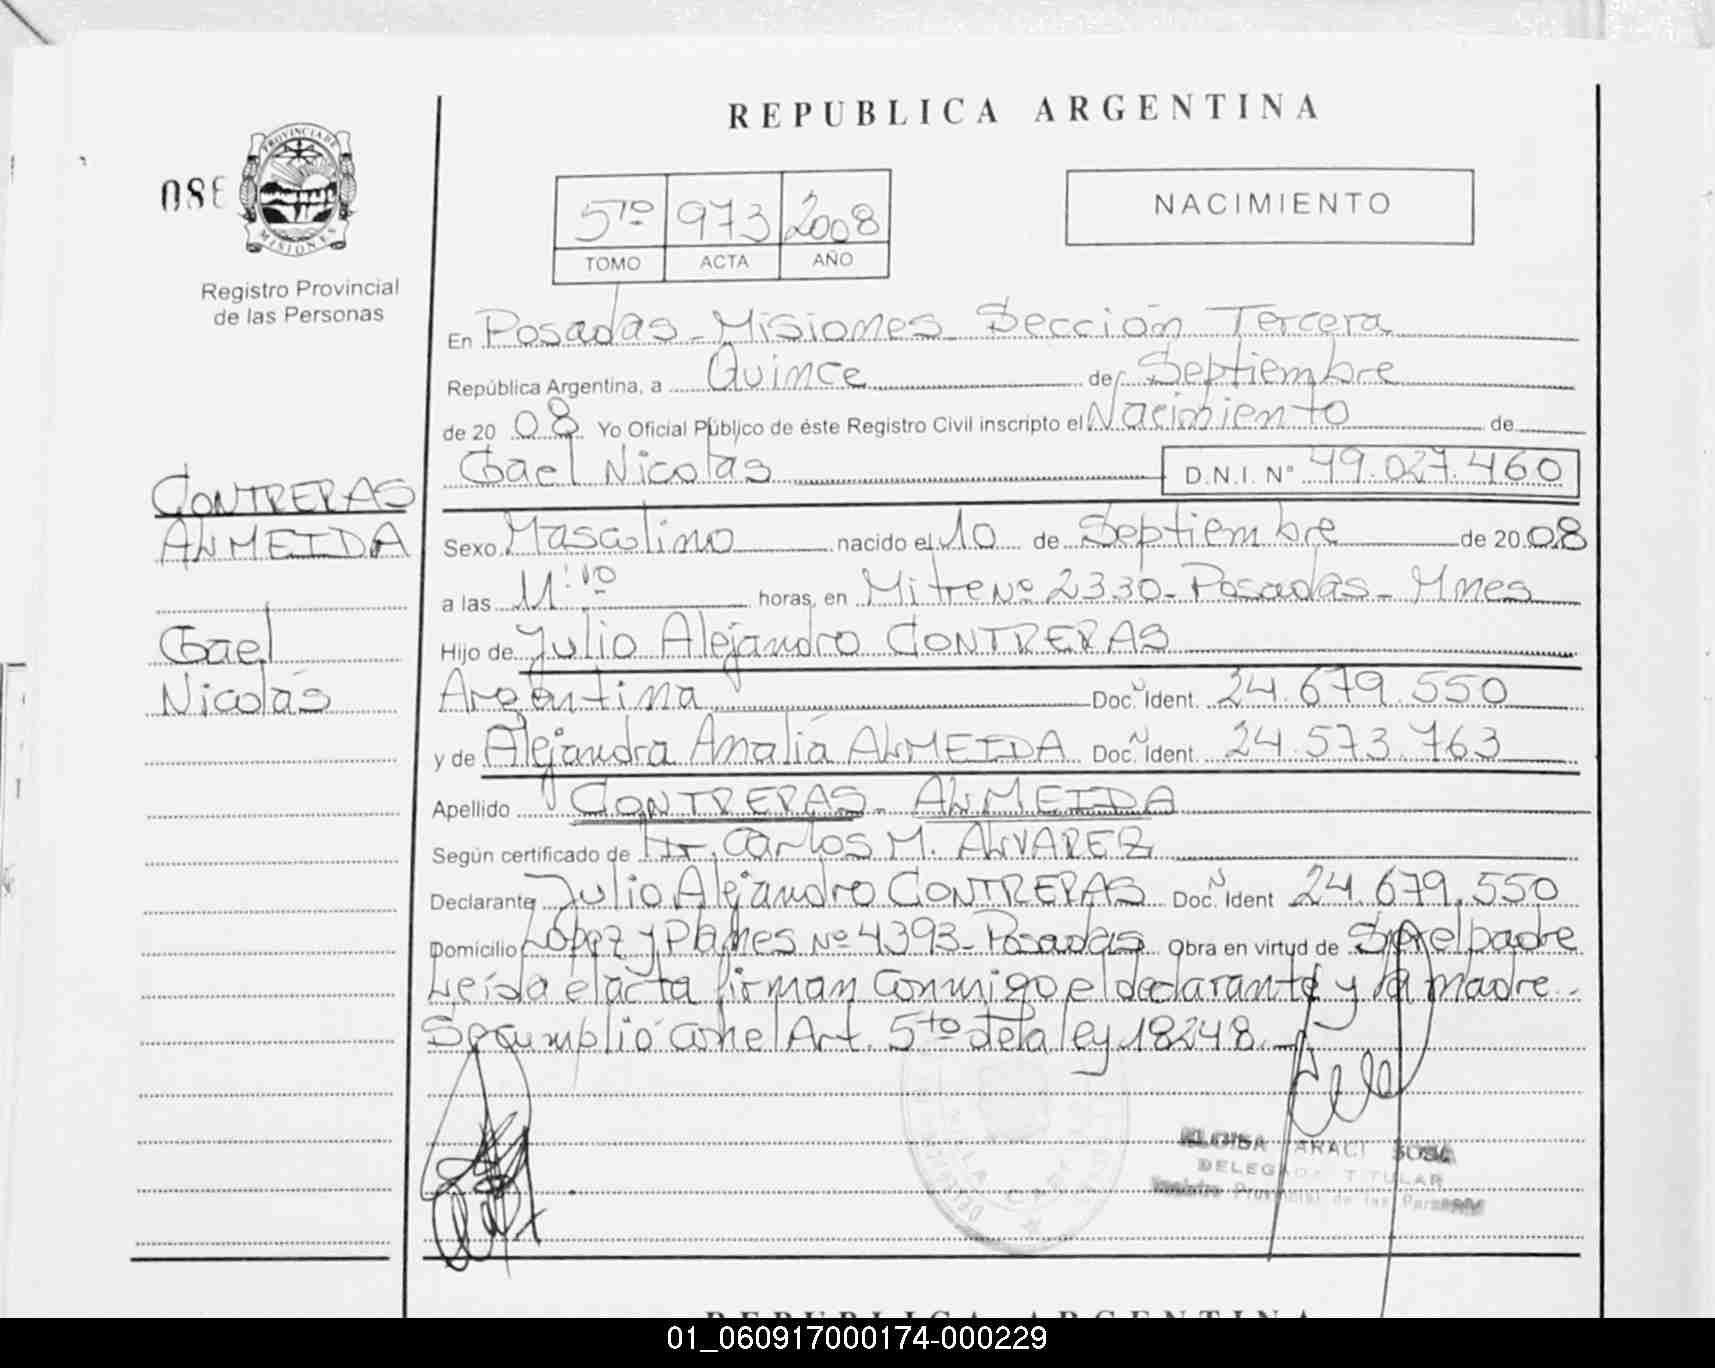 REPUBLICA ARGENTINA
PROVINCIA DE
MISIONES
Registro Provincial
de las Personas
NACIMIENTO
5to 973 2008
TOMO ACTA AÑO
En Posadas - Misiones Sección Tercera
República Argentina, a Quince de Septiembre
de 20 08 Yo Oficial Público de éste Registro Civil inscripto el Nacimiento de
Gael Nicolas D.N.I. Nº 49.027.460
CONTRERAS
ALMEIDA
Gael
Nicolás
Sexo Masculino nacido el 10 de Septiembre de 20 08
a las 11:10 horas, en Mitre Nº 2330 - Posadas - Mnes
Hijo de Julio Alejandro CONTRERAS
Argentina Doc. Ident. 24.679.550
y de Alejandra Analia ALMEIDA Doc. Ident. 24.573.763
Apellido CONTRERAS - ALMEIDA
Según certificado de Carlos M. ALVAREZ
Declarante Julio Alejandro CONTRERAS Doc. Ident 24.679.550
Domicilio Lopez y Planes Nº 4393 - Posadas Obra en virtud de Ser el padre
Leída el acta firman conmigo el declarante y la madre.
Se cumplió con el Art. 5to de la ley 18248.-
ELOISA ARACI SOSA
DELEGADA TITULAR
Registro Provincial de las Personas
REPUBLICA ARGENTINA
01_060917000174-000229